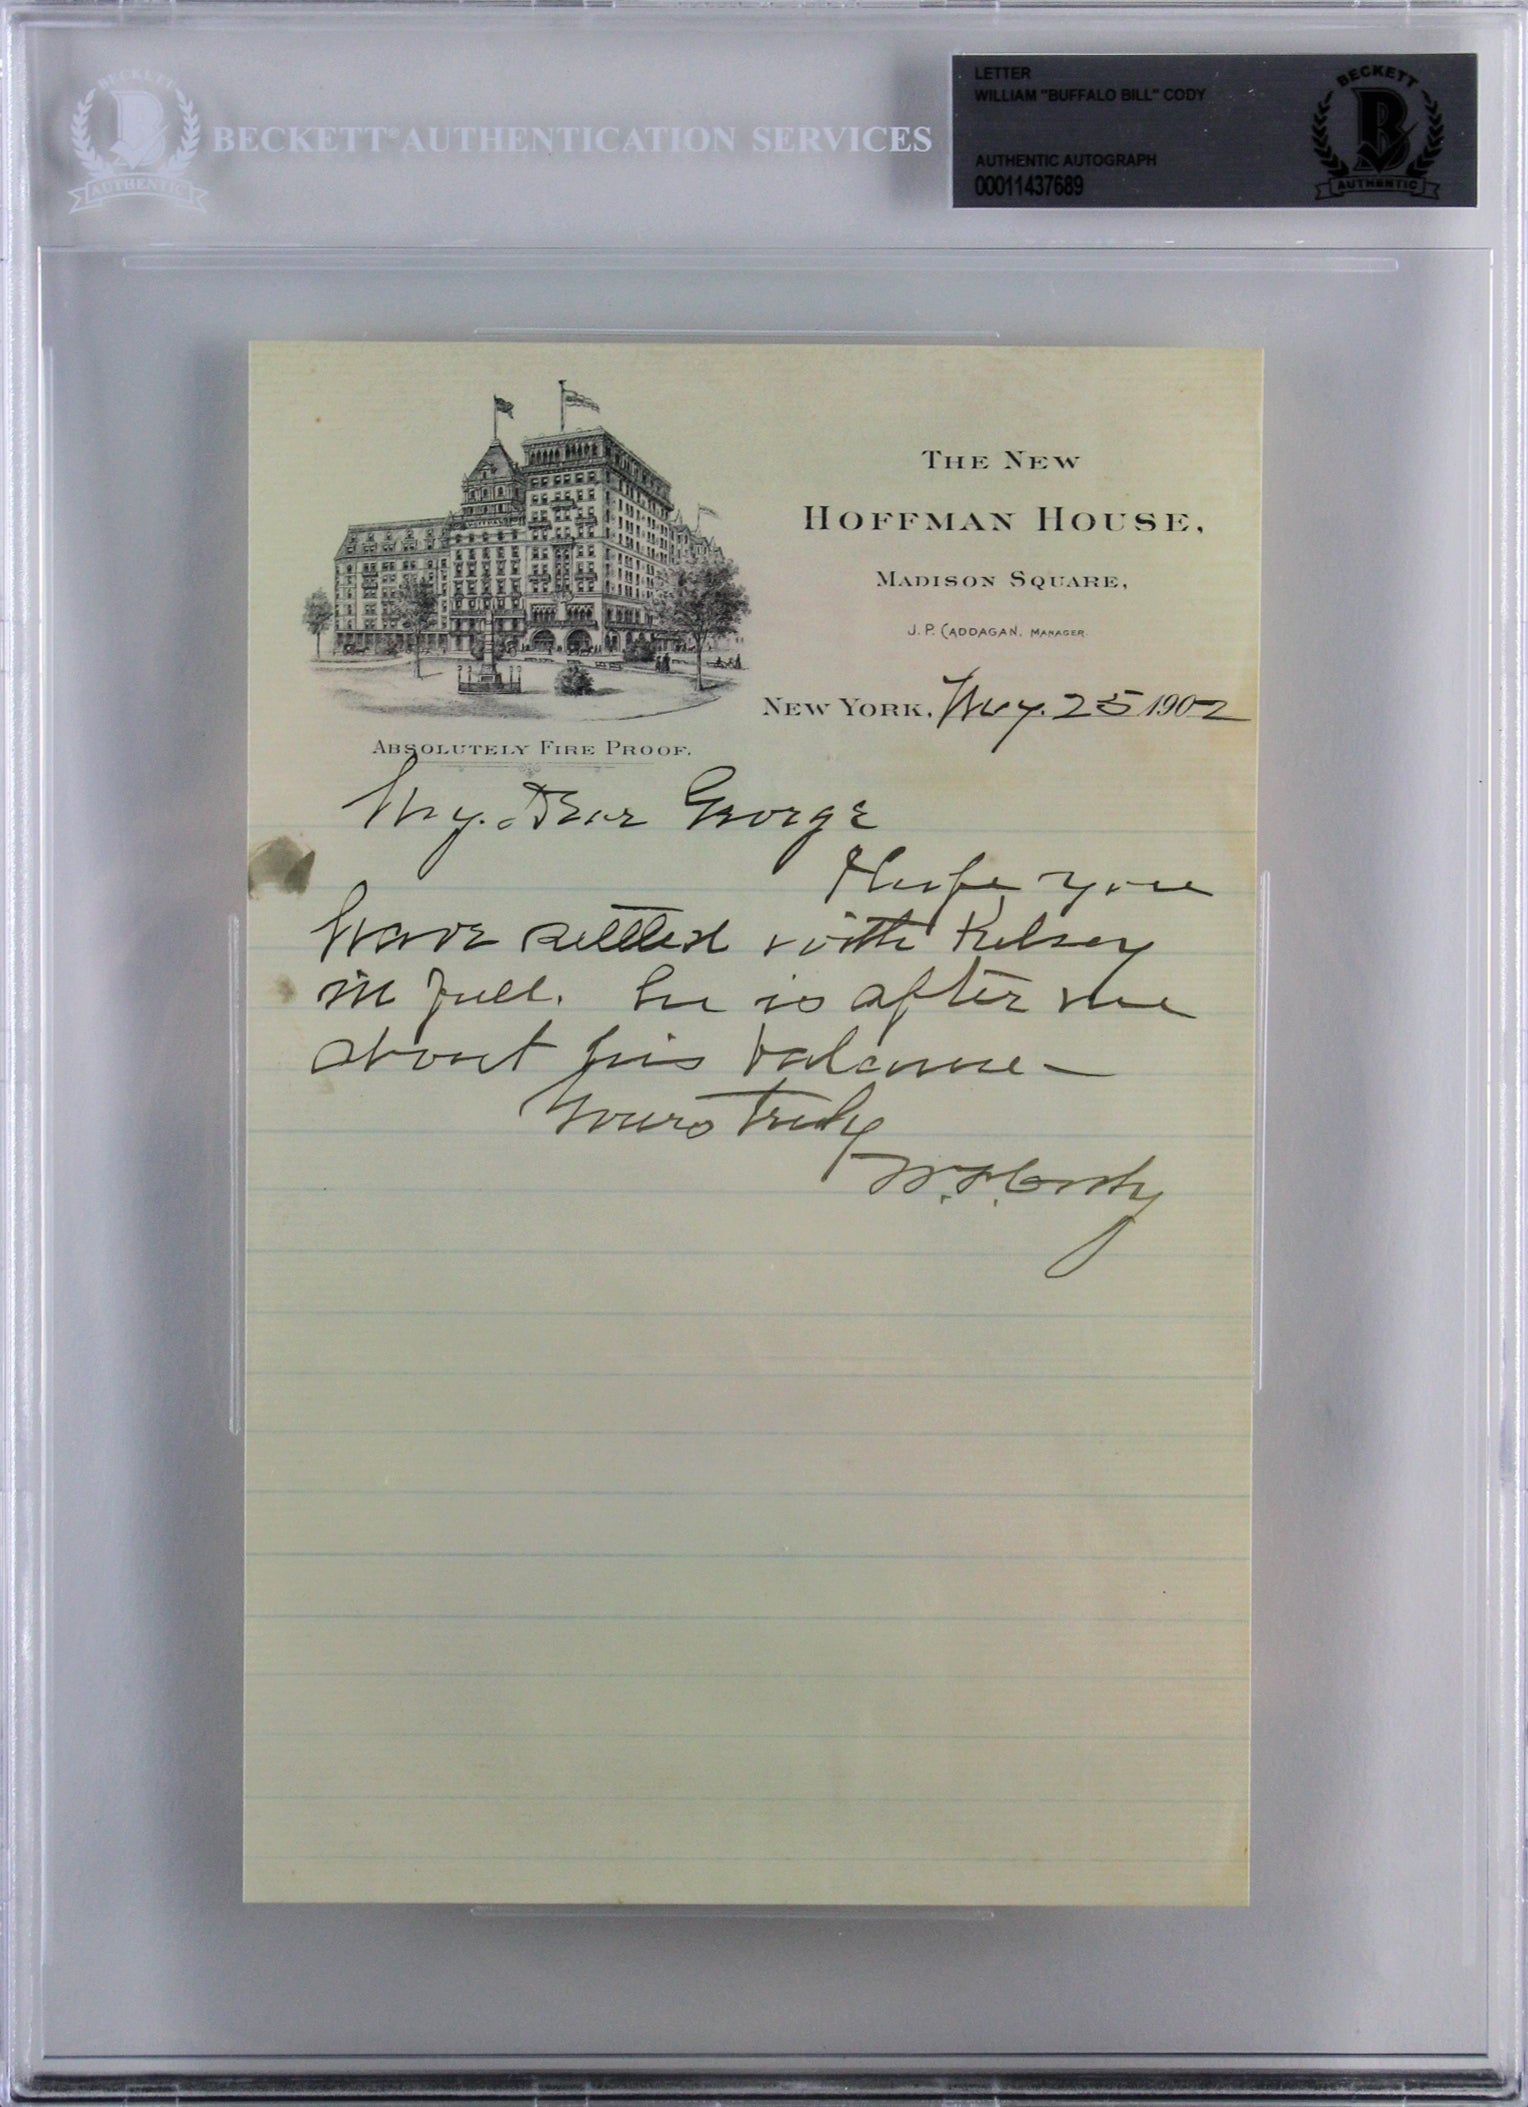 BECKETT
AUTHENTIC
BECKETT® AUTHENTICATION SERVICES
LETTER
WILLIAM "BUFFALO BILL" CODY
AUTHENTIC AUTOGRAPH
00011437689
BECKETT
B
AUTHENTIC
THE NEW
HOFFMAN HOUSE,
MADISON SQUARE,
J. P. CADDAGAN, MANAGER.
NEW YORK, 25 1902
ABSOLUTELY FIRE PROOF.
My Dear George
Hope you
have settled with Kelsey
in full. he is after me
about his balance —
Yours truly
W. F. Cody